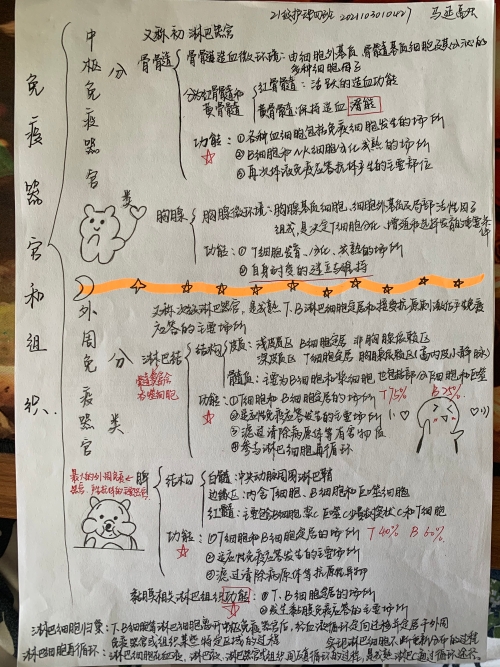 21级护理四班 20211030104427 马延
免疫器官和组织
中枢免疫器官
分类
又称初淋巴器官
骨髓
骨髓造血微环境：由细胞外基质，骨髓基质细胞及其分泌的
多种细胞因子
分红骨髓和
黄骨髓
红骨髓：活跃的造血功能
黄骨髓：保持造血潜能
功能：①各种血细胞包括免疫细胞发生的场所
②B细胞和NK细胞分化成熟的场所
③再次体液免疫应答抗体产生的主要部位
胸腺
胸腺微环境：胸腺基质细胞，细胞外基质及局部活性因子
组成，是决定T细胞分化、增殖和选择发育的重要条件
功能：①T细胞发育、分化、成熟的场所
②自身耐受的建立与维持
外周免疫器官
分类
又称次级淋巴器官，是成熟T、B淋巴细胞定居和接受抗原刺激后产生免疫
应答的主要场所
淋巴结
结构
皮质：浅皮质区 B细胞定居 非胸腺依赖区
深皮质区 T细胞定居 胸腺依赖区（高内皮小静脉）
髓质：主要为B细胞和浆细胞，也包括部分T细胞和巨噬
功能：①T细胞和B细胞定居的场所 T75% B25%
②适应性免疫应答发生的主要场所
③滤过清除病原体等有害物质
④参与淋巴细胞再循环
脾
结构
白髓：中央动脉周围淋巴鞘
边缘区：内含T细胞、B细胞和巨噬细胞
红髓：
功能：①T细胞和B细胞定居的场所 T40% B60%
②适应性免疫应答发生的主要场所
③滤过清除病原体等抗原
黏膜相关淋巴组织功能：①T、B细胞定居的场所
②发生黏膜免疫应答的主要场所
淋巴细胞归巢：T、B细胞等淋巴细胞离开中枢免疫器官后，经血液循环定向迁移并定居于外周
免疫器官或组织某些特定区域的过程
淋巴细胞再循环：淋巴细胞在血液、淋巴液、淋巴器官或组织间反复循环的过程，